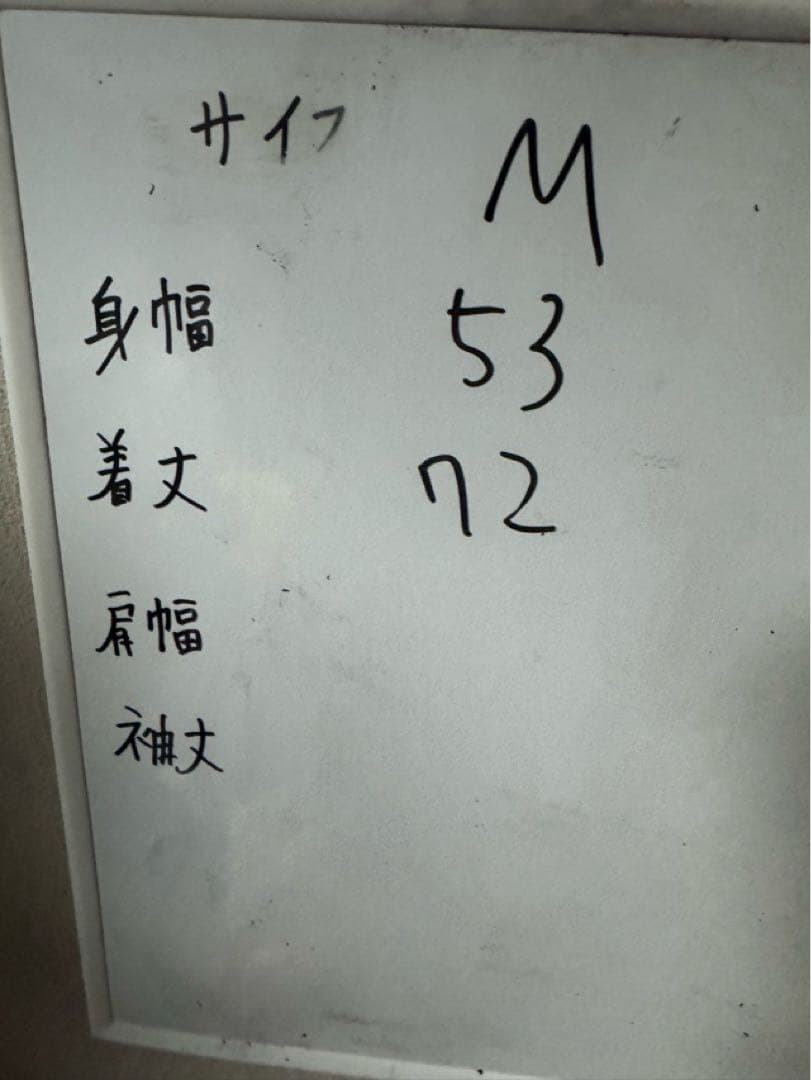 サイフ M
身幅 53
着丈 72
肩幅
袖丈